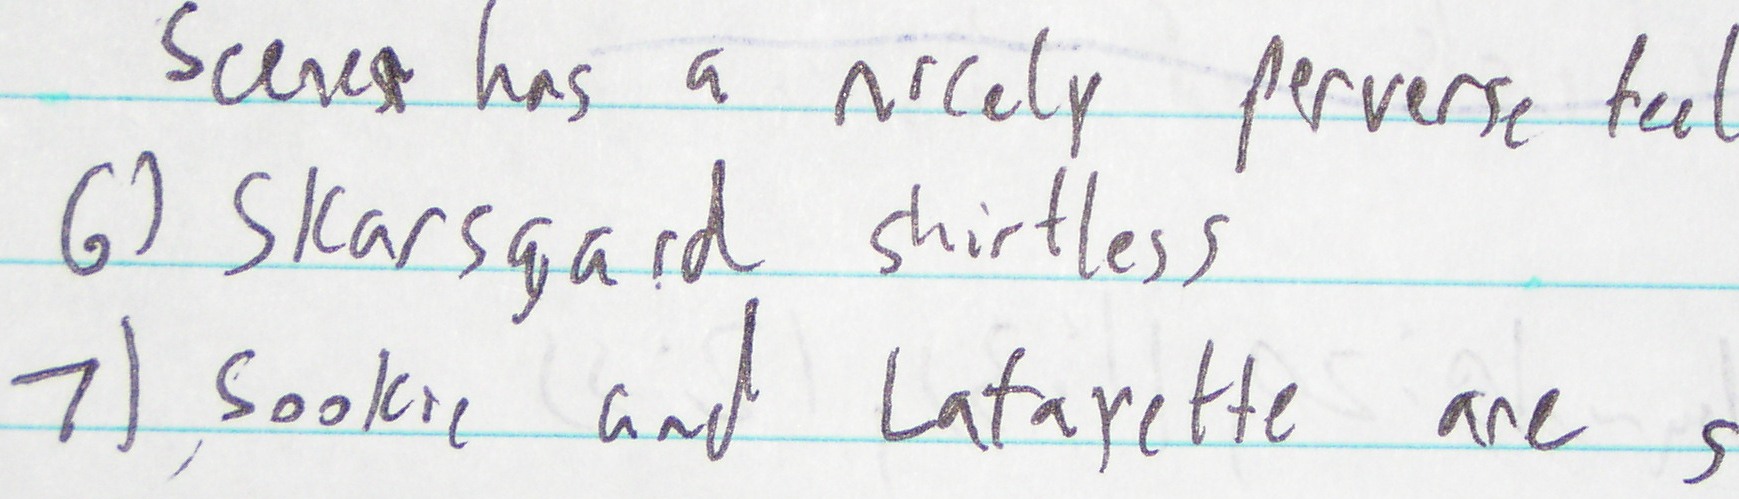 Scene has a nicely perverse feel
6) Skarsgard shirtless
7) Sookie and Lafayette are s